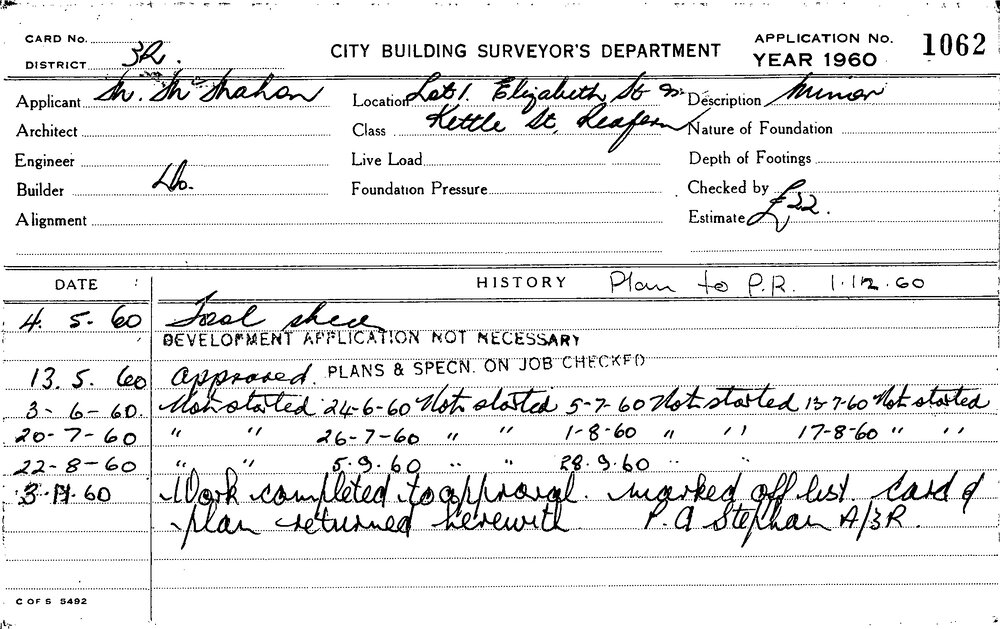 CARD No.
DISTRICT 3R.
CITY BUILDING SURVEYOR'S DEPARTMENT
APPLICATION No. 1062
YEAR 1960
Applicant M. McMahon
Location Lot 1. Elizabeth St &
Description Minor
Architect
Class Kettle St, Redfern
Nature of Foundation
Engineer
Live Load
Depth of Footings
Builder Do.
Foundation Pressure
Checked by
Alignment
Estimate £22.
DATE
HISTORY Plan to P.R. 1.12.60
4. 5. 60
DEVELOPMENT APPLICATION NOT NECESSARY
13. 5. 60 approved. PLANS & SPECN. ON JOB CHECKED
3-6-60. Not started 24-6-60 Not started 5-7-60 Not started 13-7-60 Not started
20-7-60 " " 26-7-60 " " 1-8-60 " " 17-8-60 " "
22-8-60 " " 5.9.60 " " 28.9.60 " "
3.11.60 Work completed to approval. marked off list. Card &
plan returned herewith P. A Stephan A/3R.
C OF S 5492